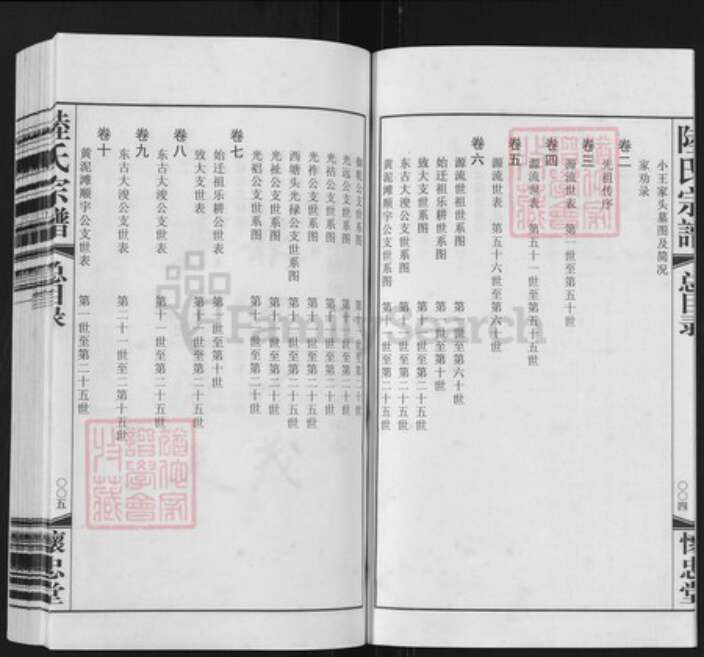 陆氏宗谱
总目录
〇〇四
怀忠堂
小王家头墓图及简况
家劝录
卷二
先祖传序
卷三
源流世表 第一世至第五十世
卷四
源流世表 第五十一世至第五十五世
卷五
源流世表 第五十六世至第六十世
卷六
源流世祖世系图 第一世至第六十世
始迁祖乐耕世系图 第一世至第十世
致大支世系图 第十一世至第二十五世
东古大浚公支世系图 第十一世至第二十五世
黄泥滩顺宇公支世系图 第十一世至第二十五世
公支世系图
光远公支世系图 第十一世至第二十世
光祜公支世系图 第十一世至第二十世
光祚公支世系图 第十一世至第二十五世
西塘头光禄公支世系图 第十一世至第二十五世
光祉公支世系图 第十一世至第二十世
光祒公支世系图 第十一世至第二十世
卷七
始迁祖乐耕公世表 第一世至第十世
致大支世表 第十一世至第二十五世
卷八
东古大浚公支世表 第十一世至第二十五世
卷九
东古大浚公支世表 第二十一世至二第十五世
卷十
黄泥滩顺宇公支世表 第十一世至第二十五世
陸氏宗譜
总目录
〇〇五
懷忠堂
FamilySearch